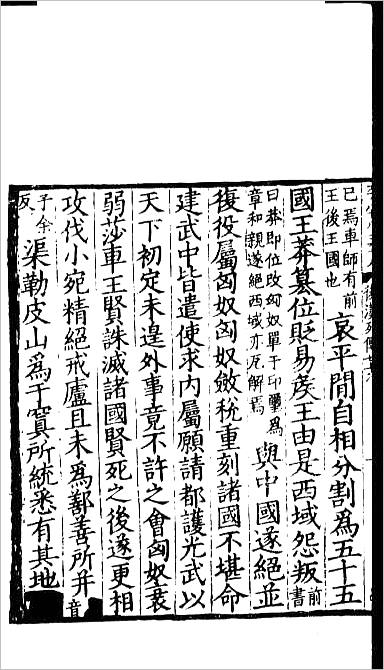 已焉車師有前王後王國也哀平閒自相分割爲五十五
國王莽篡位貶易矦王由是西域怨叛前書
曰莽即位改匈奴單于印璽爲章和親遂絕西域亦瓦解焉與中國遂絕並
復役屬匈奴匈奴斂稅重刻諸國不堪命
建武中皆遣使求內屬願請都護光武以
天下初定未遑外事竟不許之會匈奴衰
弱莎車王賢誅滅諸國賢死之後遂更相
攻伐小宛精絕戎廬且末爲鄯善所并音
子余反渠勒皮山爲于窴所統悉有其地